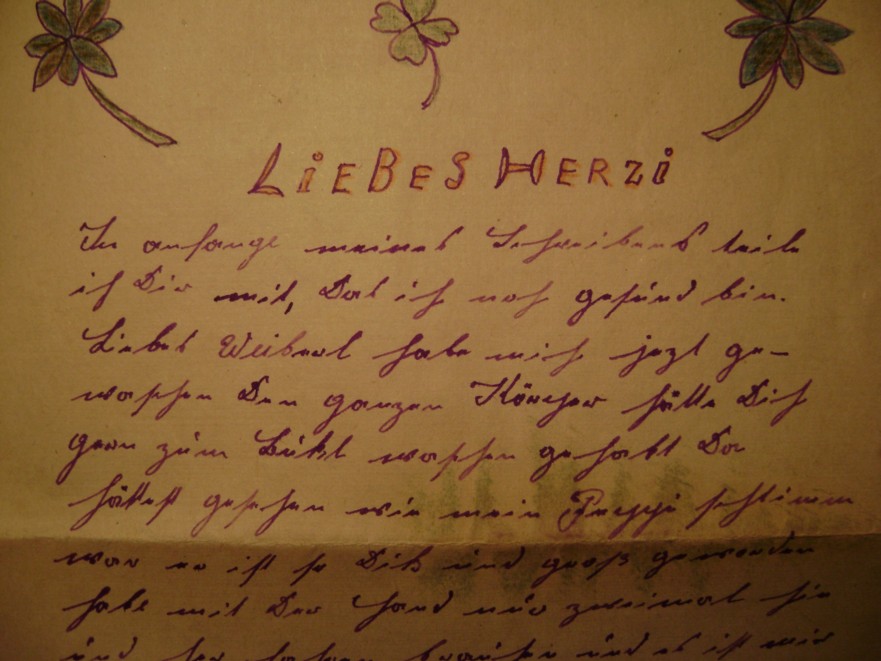 LiEBES HERZi
In anfange meines Schreibens teile
ich Dir mit, Das ich noch gesund bin.
Liebes Weiberl habe mich jezt ge-
waschen Den ganzen Körper hätte Dich
gern zum Bukl waschen gehabt Da
hättest gesehen wie mein Peppi schlimm
war er ist so Dik und groß geworden
habe mit Der Hand nur zweimal hin
und her fahren brauchen und es ist mir